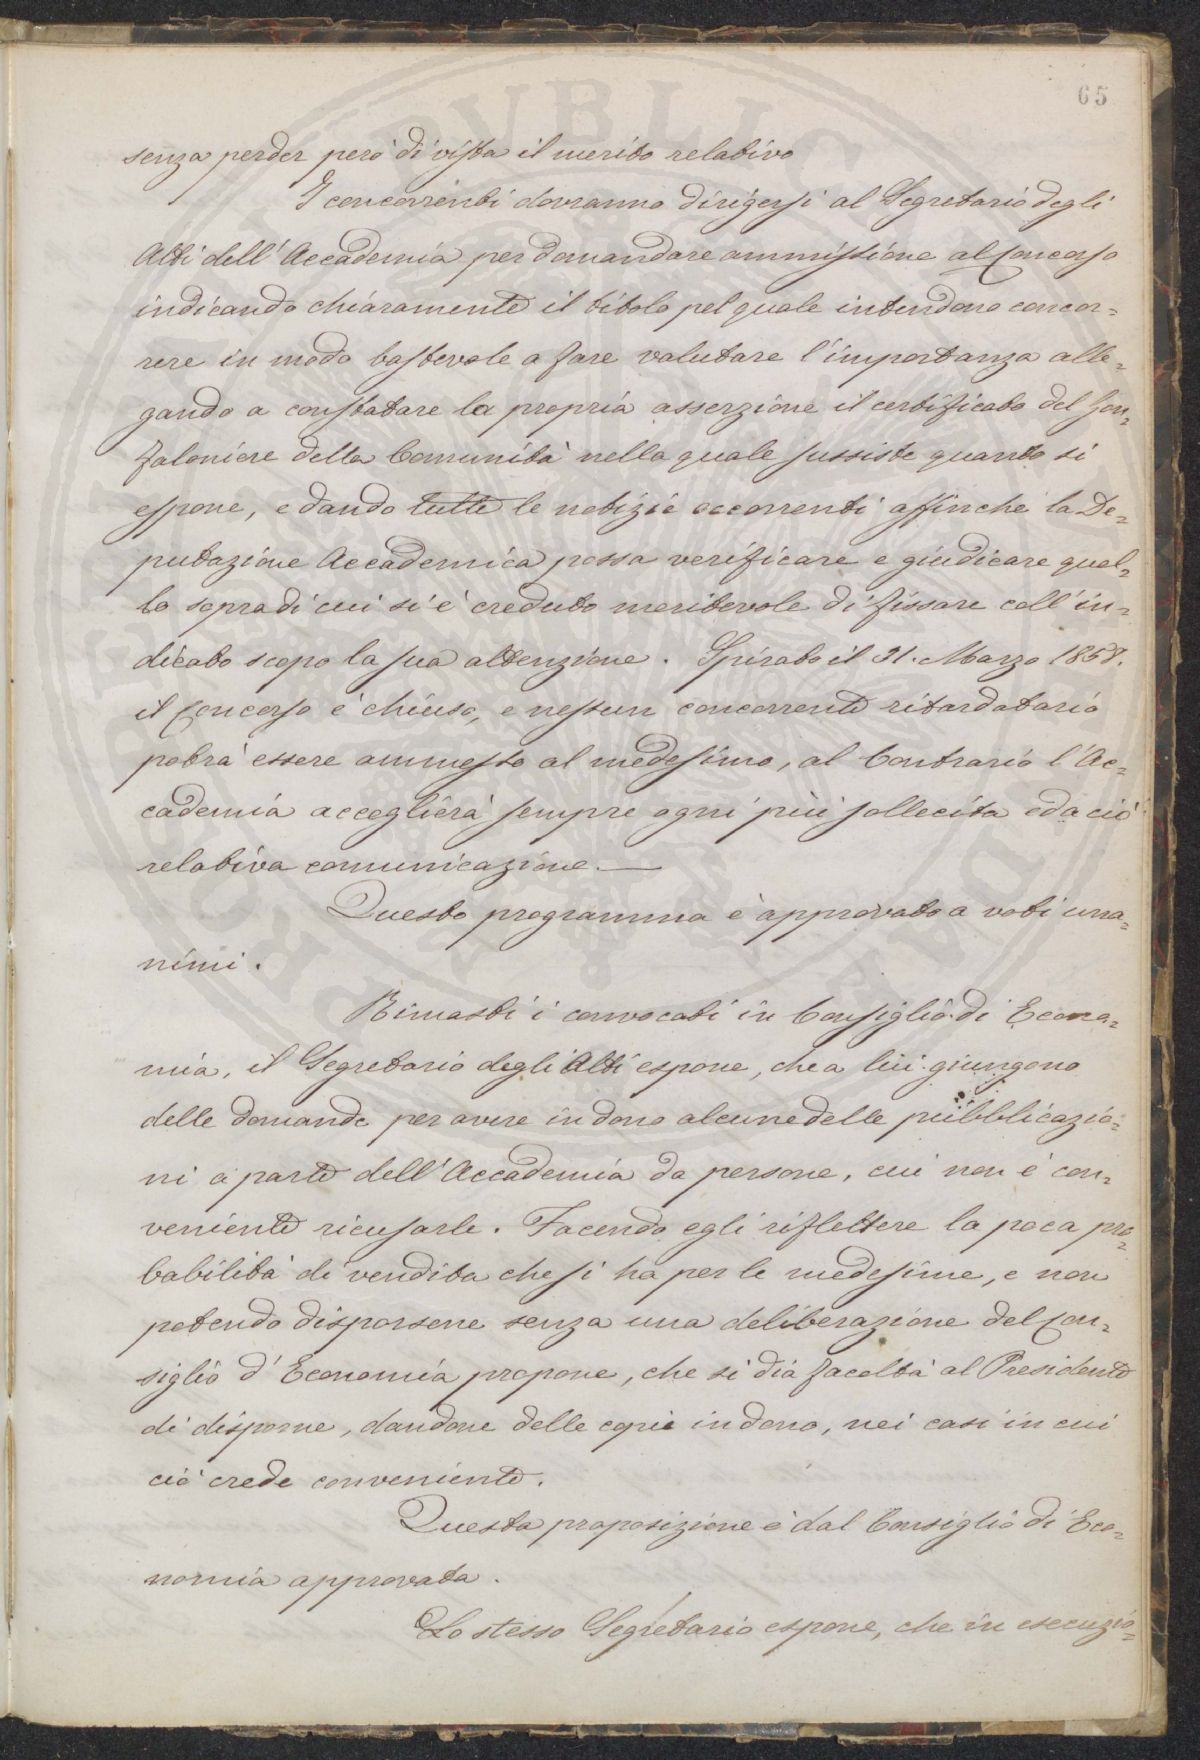 65
senza perder però di vista il merito relativo
I concorrenti dovranno dirigersi al Segretario degli
Atti dell'Accademia per domandare ammissione al Concorso
indicando chiaramente il titolo pel quale intendono concor=
rere in modo bastevole a fare valutare l'importanza alle=
gando a constatare la propria asserzione il certificato del Gon=
faloniere della Comunità nella quale sussiste quanto si
espone, e dando tutte le notizie occorrenti affinché la De=
putazione Accademica possa verificare e giudicare quel=
lo sopra di cui si è creduto meritevole di fissare coll'in=
dicato scopo la sua attenzione. Spirato il 31. Marzo 1858.
il Concorso è chiuso, e nessun concorrente ritardatario
potrà essere ammesso al medesimo, al Contrario l'Ac=
cademia accoglierà sempre ogni più sollecita ed a ciò
relativa comunicazione.—
Questo programma è approvato a voti una=
nimi.
Rimasti i convocati in Consiglio di Econo=
mia, il Segretario degli Atti espone, che a lui giungono
delle domande per avere in dono alcune delle pubblicazio=
ni a parte dell'Accademia da persone, cui non è con=
veniente ricusarle. Facendo egli riflettere la poca pro=
babilità di vendita che si ha per le medesime, e non
potendo disporsene senza una deliberazione del Con=
siglio d'Economia propone, che si dia facoltà al Presidente
di disporne, dandone delle copie in dono, nei casi in cui
ciò crede conveniente.
Questa proposizione è dal Consiglio di Eco=
nomia approvata.
Lo stesso Segretario espone, che in esecuzio=